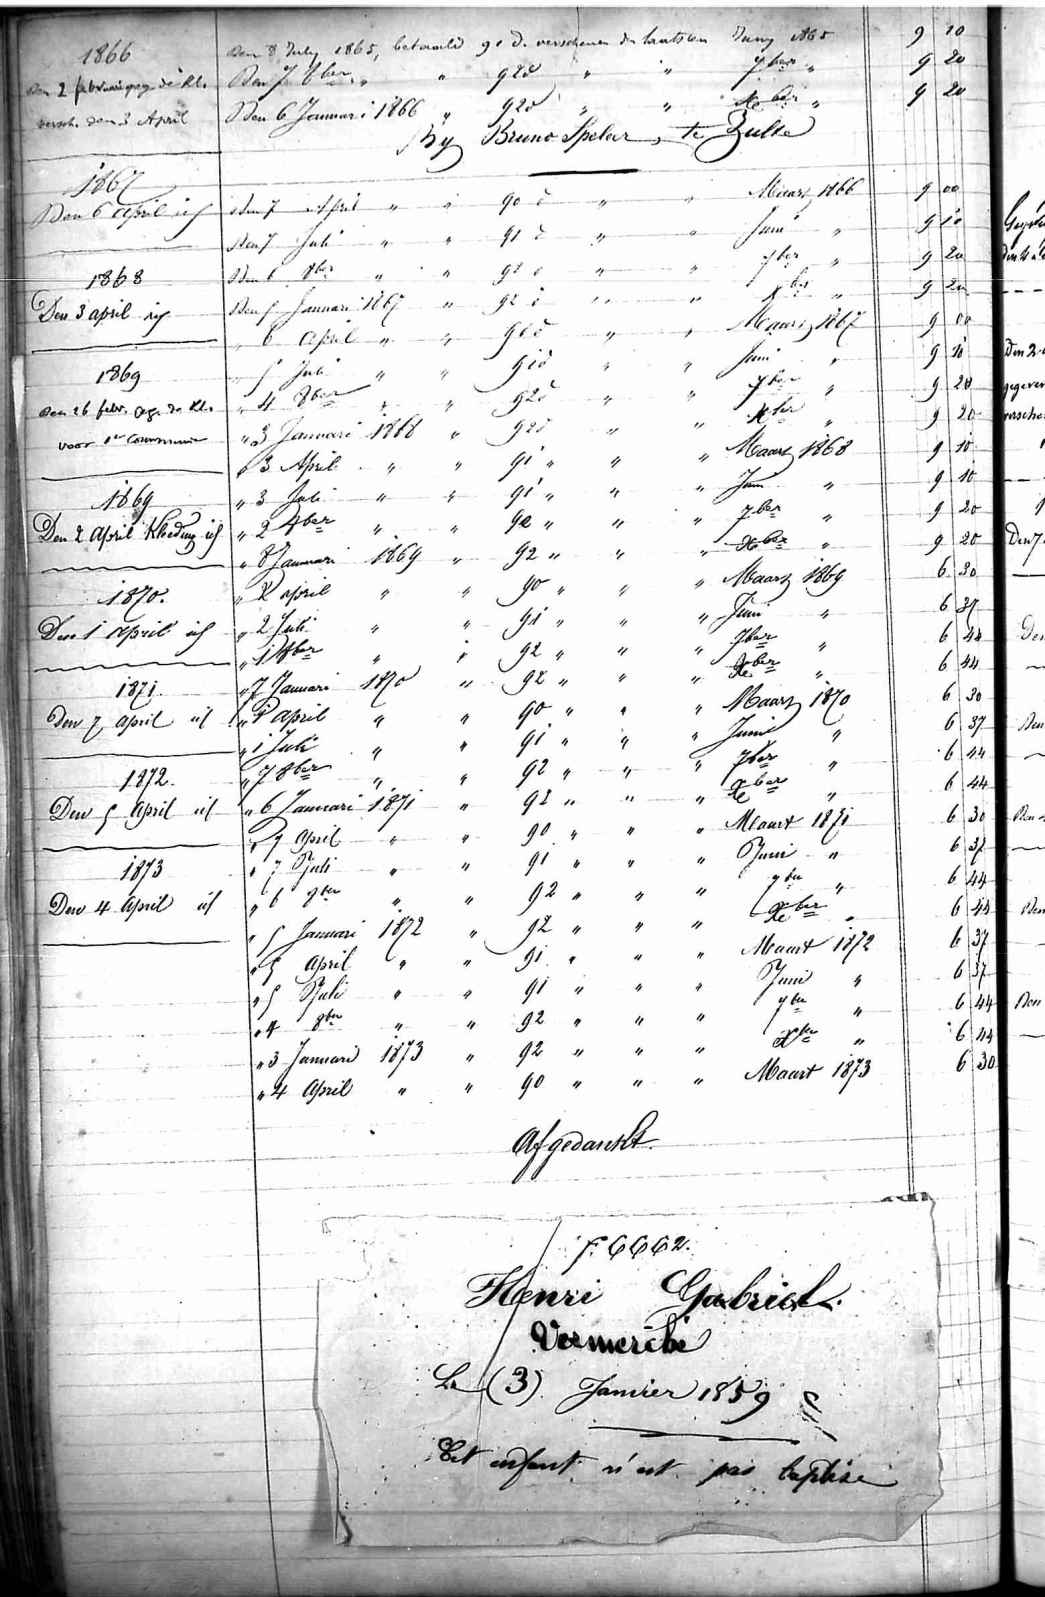 1866
Den 2 februari geg. de Kl.
versch. den 3 April
1867
Den 6 April id
1868
Den 3 april id
1869
Den 26 febr. geg. de Kl.
voor 1e Communie
1869
Den 2 April Kleding id
1870.
Den 1 April id
1871.
Den 7 april id
1872.
Den 5 April id
1873
Den 4 April id
Den 8 July 1865, betaald 91 d. verschenen den laatsten Juny 1865 9 10
Den 7 8ber " " 92 d " " 7ber " 9 20
Den 6 Januari 1866 " 92 d " " Xber " 9 20
By Bruno Spelaer, te Zulte
Den 7 April " " 90 d " " Maart 1866 9 00
Den 7 Juli " " 91 d " " Juni " 9 10
Den 6 8ber " " 92 d " " 7ber " 9 20
Den 5 Januari 1867 " 92 d " " Xber " 9 20
" 6 April " " 90 d " " Maart 1867 9 00
" 5 Juli " " 91 d " " Juni " 9 10
" 4 8ber " " 92 d " " 7ber " 9 20
" 3 Januari 1868 " 92 d " " Xber " 9 20
" 3 April " " 91 " " " Maart 1868 9 10
" 3 Juli " " 91 " " " Juni " 9 10
" 2 8ber " " 92 " " " 7ber " 9 20
" 8 Januari 1869 " 92 " " " Xber " 9 20
" 2 april " " 90 " " " Maart 1869 6 30
" 2 Juli " " 91 " " " Juni " 6 37
" 1 8ber " " 92 " " " 7ber " 6 44
" 7 Januari 1870 " 92 " " " Xber " 6 44
" 1 April " " 90 " " " Maart 1870 6 30
" 1 Juli " " 91 " " " Juni " 6 37
" 7 8ber " " 92 " " " 7ber " 6 44
" 6 Januari 1871 " 92 " " " Xber " 6 44
" 7 April " " 90 " " " Maart 1871 6 30
" 7 Juli " " 91 " " " Juni " 6 37
" 6 8ber " " 92 " " " 7ber " 6 44
" 5 Januari 1872 " 92 " " " Xber " 6 44
" 5 April " " 91 " " " Maart 1872 6 37
" 5 Juli " " 91 " " " Juni " 6 37
" 4 8ber " " 92 " " " 7ber " 6 44
" 3 Januari 1873 " 92 " " " Xber " 6 44
" 4 April " " 90 " " " Maart 1873 6 30
Afgedankt.
f. 6662.
Henri Gabriel
Vermeiche
Le (3) Janvier 1859
Cet enfant n'est pas baptisé